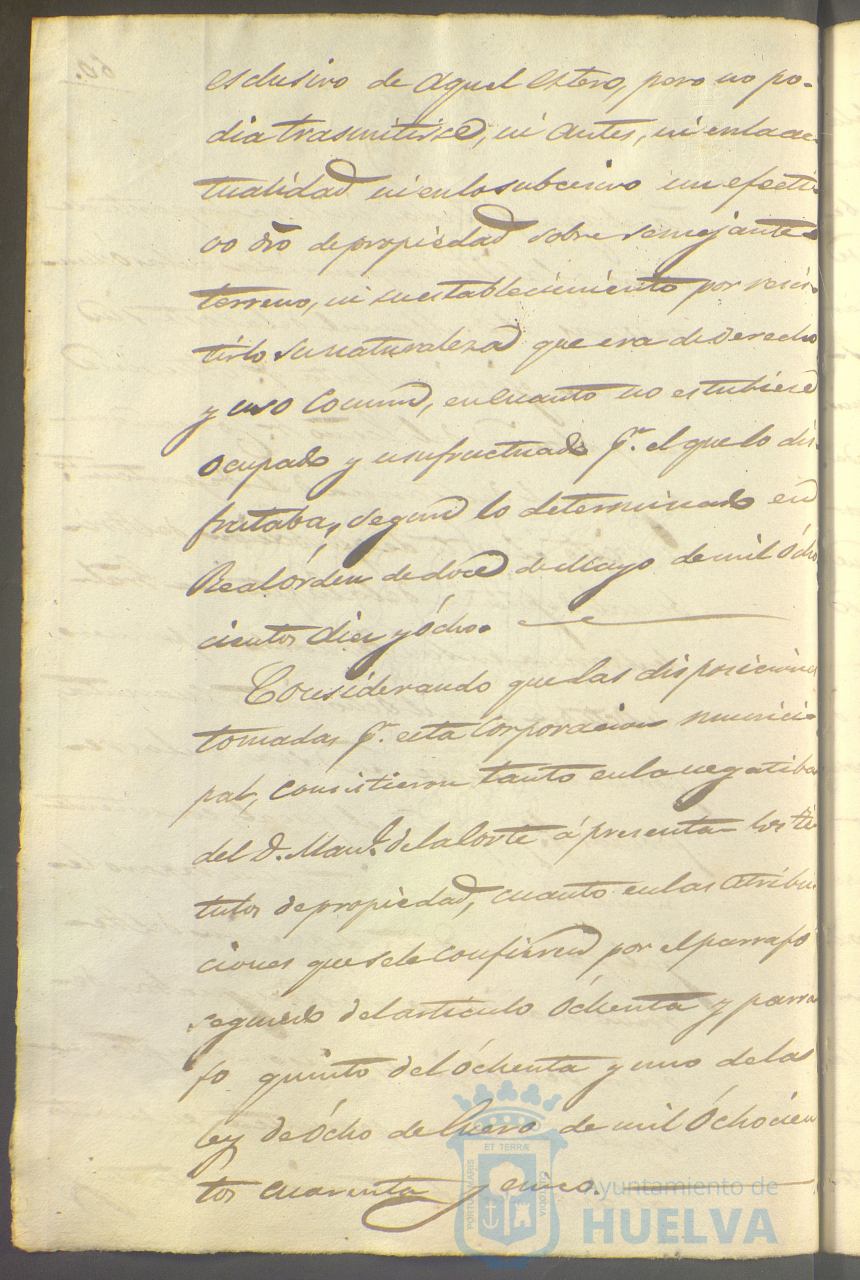 esclusivo de aquel estero, pero no po-
dia trasmitirse, ni antes, ni en la ac-
tualidad ni en lo subcesivo un efecti-
vo dro de propiedad sobre semejante
terreno, ni su establecimiento por resis-
tirlo su naturaleza que era de derecho
y uso comun, en cuanto no estubiese
ocupado y usufructuado pr. el que lo dis-
frutaba, segun lo determinado en
Real órden de doce de Mayo de mil ócho
cientos diez y ócho.
Considerando que las disposiciones
tomadas pr. esta Corporacion munici-
pal, consistieron tanto en la negatiba
del D. Manl. de la Corte á presentar los tí
tulos de propiedad, cuanto en las atribu
ciones que se le confieren por el parrafo
segundo del artículo óchenta y parra
fo quinto del óchenta y uno de la
ley de ócho de Enero de mil óchocien
tos cuarenta y cinco.
PORTUS MARIS
ET TERRÆ
CUSTODIA
Ayuntamiento de
HUELVA